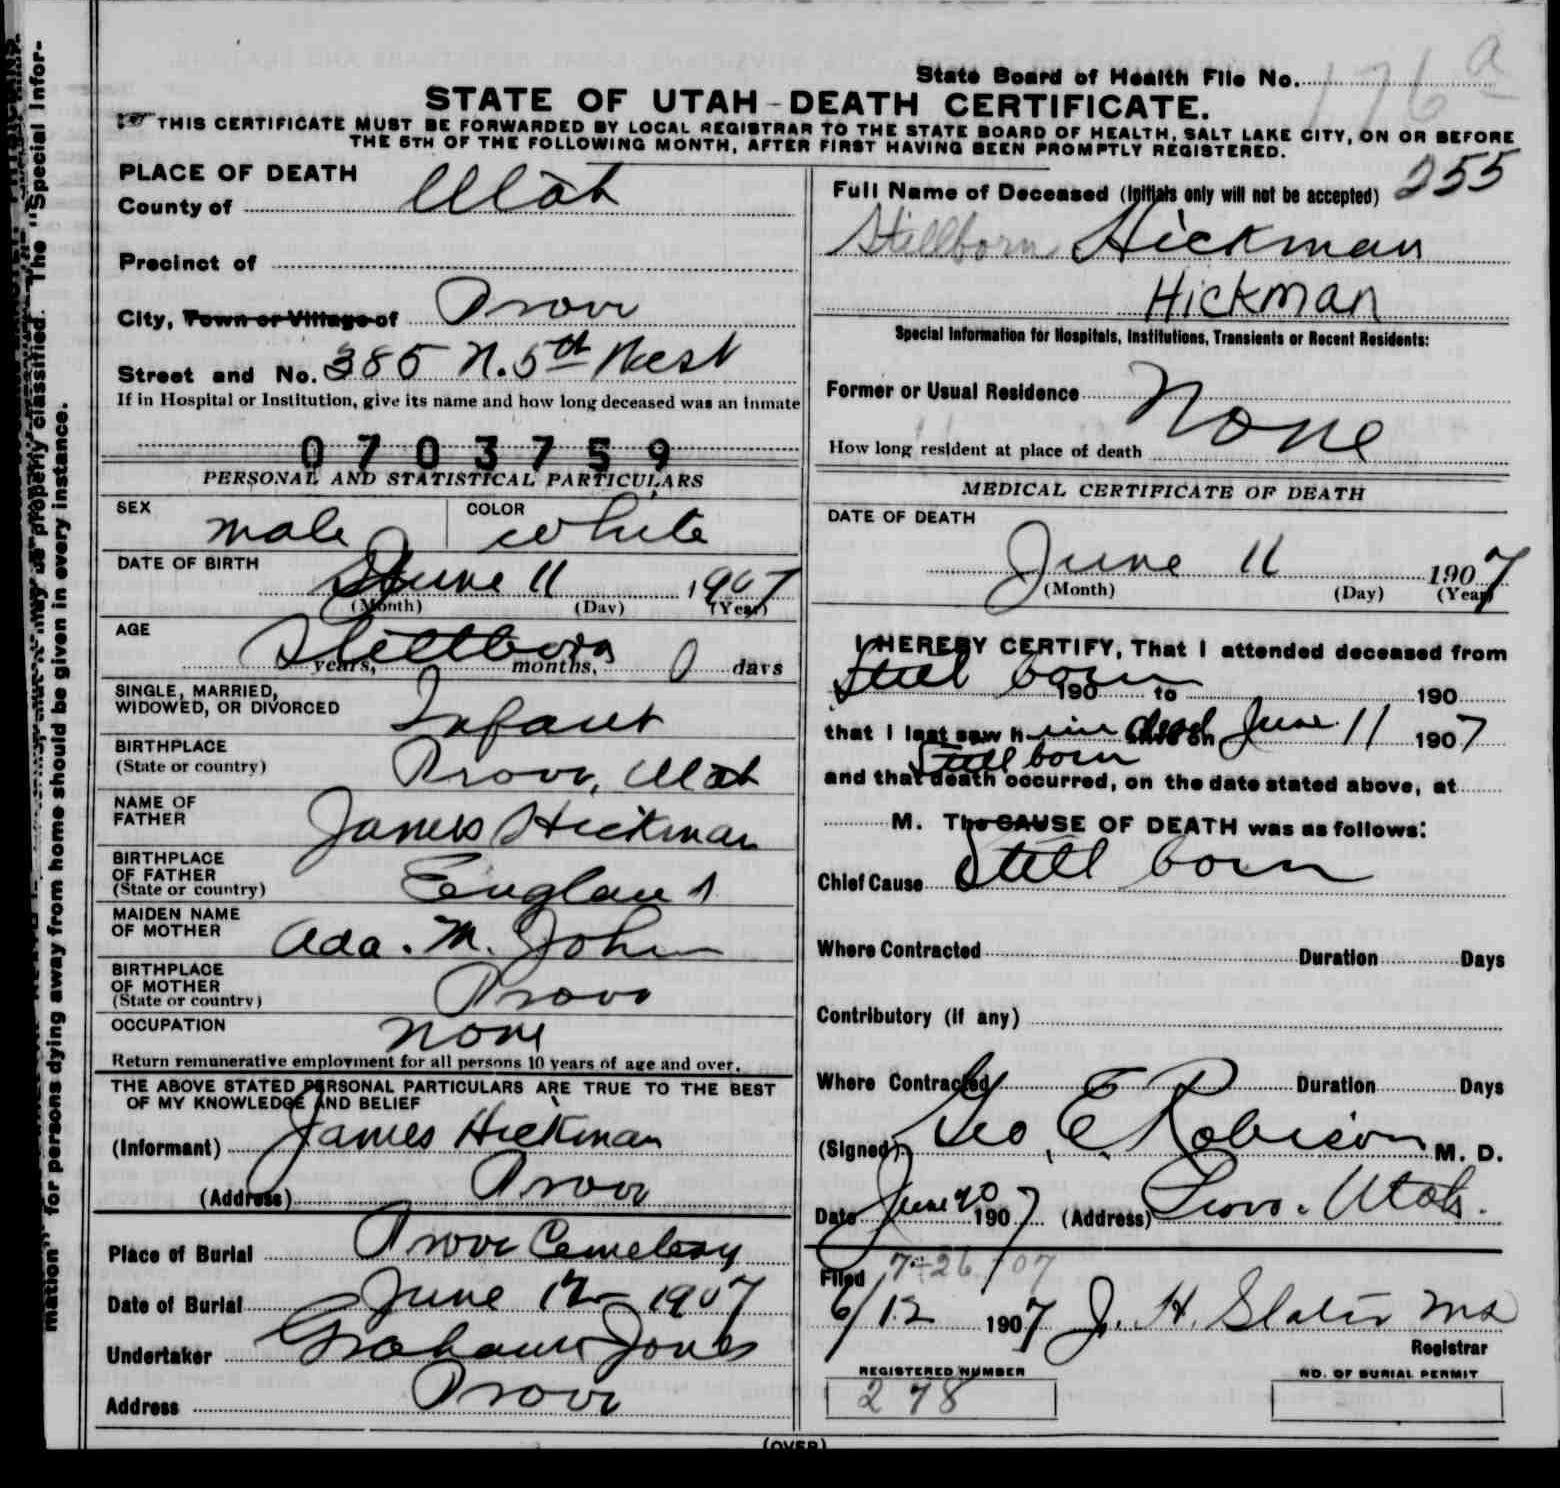 State Board of Health File No. 176 a
STATE OF UTAH-DEATH CERTIFICATE.
THIS CERTIFICATE MUST BE FORWARDED BY LOCAL REGISTRAR TO THE STATE BOARD OF HEALTH, SALT LAKE CITY, ON OR BEFORE
THE 5TH OF THE FOLLOWING MONTH, AFTER FIRST HAVING BEEN PROMPTLY REGISTERED.
PLACE OF DEATH
County of Utah
Precinct of
City, Town or Village of Provo
Street and No. 385 N. 5th West
If in Hospital or Institution, give its name and how long deceased was an inmate
0703759
PERSONAL AND STATISTICAL PARTICULARS
SEX male COLOR white
DATE OF BIRTH June 11 1907
(Month) (Day) (Year)
AGE Stillborn years, months, 0 days
SINGLE, MARRIED,
WIDOWED, OR DIVORCED Infant
BIRTHPLACE
(State or country) Provo, Utah
NAME OF
FATHER James Hickman
BIRTHPLACE
OF FATHER
(State or country) England
MAIDEN NAME
OF MOTHER Ada. M. John
BIRTHPLACE
OF MOTHER
(State or country) Provo
OCCUPATION none
Return remunerative employment for all persons 10 years of age and over.
THE ABOVE STATED PERSONAL PARTICULARS ARE TRUE TO THE BEST
OF MY KNOWLEDGE AND BELIEF
(Informant) James Hickman
(Address) Provo
Place of Burial Provo Cemetery
Date of Burial June 12 1907
Undertaker Graham Jones
Address Provo
255
Full Name of Deceased (Initials only will not be accepted)
Stillborn Hickman
Hickman
Special Information for Hospitals, Institutions, Transients or Recent Residents:
Former or Usual Residence None
How long resident at place of death
MEDICAL CERTIFICATE OF DEATH
DATE OF DEATH
June 11 1907
(Month) (Day) (Year)
I HEREBY CERTIFY, That I attended deceased from
Still born 190 to 190
that I last saw h im dead on June 11 1907
Still born
and that death occurred, on the date stated above, at
M. The CAUSE OF DEATH was as follows:
Chief Cause Still born
Where Contracted Duration Days
Contributory (if any)
Where Contracted Duration Days
(Signed) Geo. E. Robison M. D.
Date June 20 1907 (Address) Provo. Utah.
Filed 7-26-07
6/12 1907 J. H. Slater MD
Registrar
REGISTERED NUMBER
278
NO. OF BURIAL PERMIT
(OVER)
properly classified. The "Special Infor-
mation" for persons dying away from home should be given in every instance.